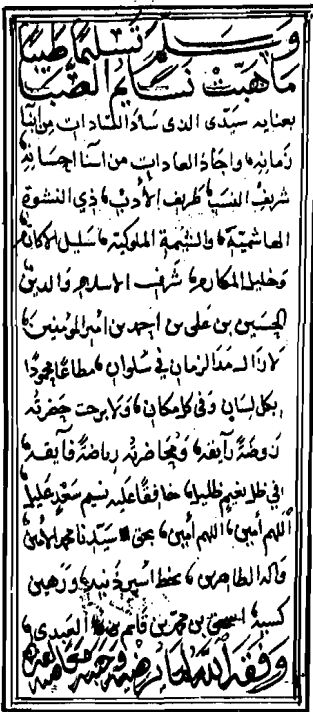 وسلم تسليما طيبا
ما هبت نسايم الصبا
بعنايه سيدى الذى ساد السادات من ابنا
زمانه واجاد العادات من اسنا احسانه
شريف النسب ظريف الأدب ذي النشوة
الهاشمية والشيمة الملوكية سليل الاكارم
وخليل المكارم شرف الاسلام والدين
الحسين بن على بن احمد بن امير المؤمنين
لازال مد الزمان في سلوان مطاعا محمودا
بكل لسان وفى كل مكان ولا برحت حضرته
روضة رايقه ومحاضرته رياضة فايقه
في ظل نعيم ظليل خافقا عليه نسيم سعد عليل
اللهم أمين اللهم أمين بحق سيدنا محمد الأمين
واله الطاهرين بخط اسير ذنبه ورهين
كسبه اسحق بن محمد بن قاسم العبدي
وفقه الله لما يرضيه